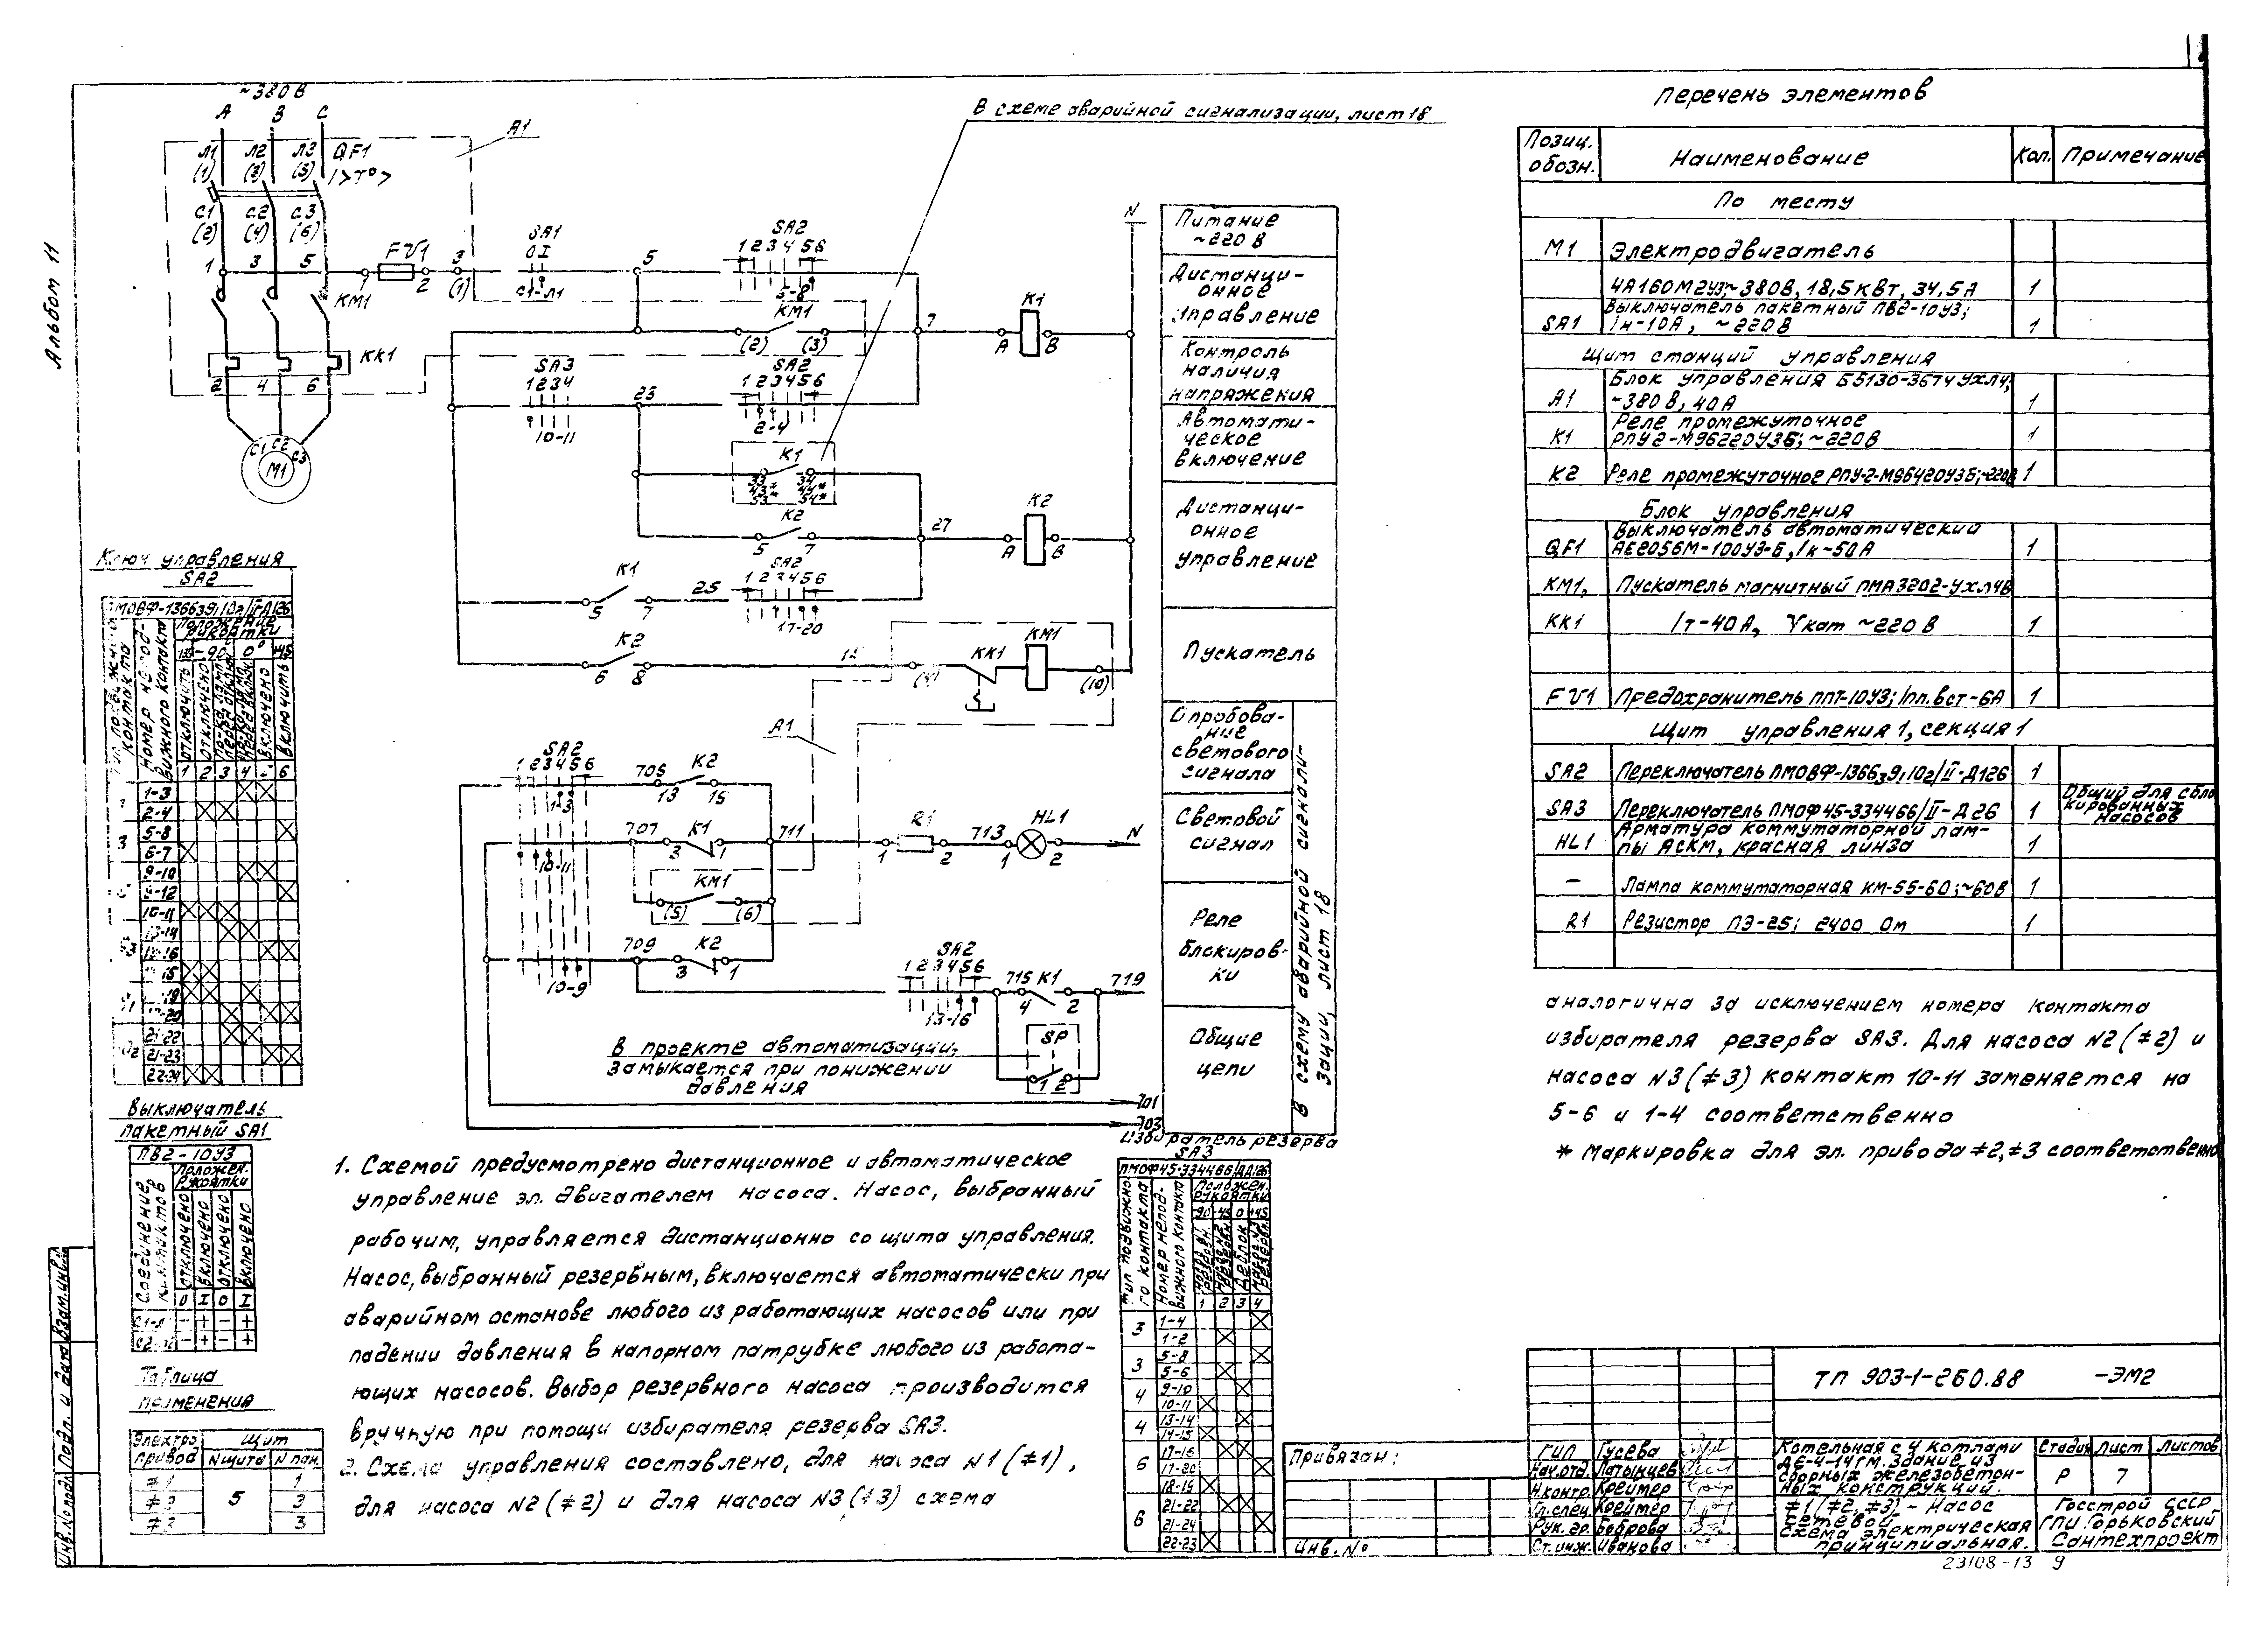 Альбом 11
~380 В
А В С
Л1 Л2 Л3 QF1
(1) (3) (5) I>T°>
С1 С2 С3
(2) (4) (6)
1 3 5
FV1
1 2 3
(1)
А1
В схеме аварийной сигнализации, лист 18
SA1
0 I
С1-Л1
5
SA2
1 2 3 4 5 6
5-8
КМ1
КМ1
(2) (3)
7
К1
А В
N
КК1
2 4 6
С1 С2 С3
М1
SA3
1 2 3 4
10-11
23
SA2
1 2 3 4 5 6
2-4
К1
33 34
43* 44*
53* 54*
К2
5 7
27
К2
А В
К1
5 7
25
SA2
1 2 3 4 5 6
17-20
К2
6 8
КК1
КМ1
(10)
А1
SA2
1 2 3 4 5 6
1-3
705
К2
13 15
707
К1
3 1
711
R1
1 2
713
HL1
1 2
N
10-11
КМ1
(5) (6)
709
К2
3 1
10-9
SA2
1 2 3 4 5 6
13-16
715 К1
4 2
719
SP
1 2
В проекте автоматизации,
замыкается при понижении
давления
701
703
Питание
~220 В
Дистанци-
онное
управление
Контроль
наличия
напряжения
Автомати-
ческое
включение
Дистанци-
онное
управление
Пускатель
Опробова-
ние
светового
сигнала
Световой
сигнал
Реле
блокиров-
ки
Общие
цепи
В схему аварийной сигнали-
зации, лист 18
Ключ управления
SA2
Положение
рукоятки
1 2 3 4 6
1-3
2-4
5-8
6-7
9-10
9-12
10-11
13-14
21-22
21-23
22-24
Выключатель
пакетный SA1
ПВ2-10У3
Положен.
рукоятки
Соединение
контактов
отключено
включено
отключено
включено
0 I 0 I
- + - +
- + - +
Таблица
применения
Электро
привод
Щит
N щита N пан.
≠1 1
5 3
3
1. Схемой предусмотрено дистанционное и автоматическое
управление эл. двигателем насоса. Насос, выбранный
рабочим, управляется дистанционно со щита управления.
Насос, выбранный резервным, включается автоматически при
аварийном останове любого из работающих насосов или при
падении давления в напорном патрубке любого из работа-
ющих насосов. Выбор резервного насоса производится
вручную при помощи избирателя резерва SA3.
2. Схема управления составлено, для насоса N1 (≠1),
для насоса N2 (≠2) и для насоса N3 (≠3) схема
Избиратель резерва
SA3
ПМОФ45-334466/IIД126
Положен.
рукоятки
Тип подвижно
го контакта
Номер непод-
вижного контакта
-90 -45 0 +45
1 2 3 4
3 1-4
1-2
3 5-8
5-6
4 9-10
10-11
4 13-14
14-15
6 17-18
17-20
18-19
6 21-22
21-24
22-23
Перечень элементов
Позиц.
обозн. Наименование Кол. Примечание
По месту
М1 Электродвигатель
4А160М2У3;~380В, 18,5 кВт, 34,5 А 1
SA1 Выключатель пакетный ПВ2-10У3;
Iн-10А, ~220В 1
Щит станций управления
А1 Блок управления Б5130-3674УХЛ4;
~380 В, 40 А 1
К1 Реле промежуточное
РПУ2-М96220У3Б; ~220В 1
К2 Реле промежуточное РПУ-2-М96420У3Б;~220В 1
Блок управления
QF1 Выключатель автоматический
АЕ2056М-100У3-Б, Iк-50А 1
КМ1, Пускатель магнитный ПМА3202-УХЛ4В
КК1 Iт-40А, Укат ~220 В 1
FV1 Предохранитель ППТ-10У3; Iпл.вст-6А 1
Щит управления 1, секция 1
SA2 Переключатель ПМОВФ-136639,102/II-Д126 1
SA3 Переключатель ПМОФ45-334466/II-Д26 1 Общий для сбло
кированных
насосов
HL1 Арматура коммутаторной лам-
пы АСКМ, красная линза 1
– Лампа коммутаторная КМ-55-60;~60В 1
R1 Резистор ПЭ-25; 2400 Ом 1
аналогична за исключением номера контакта
избирателя резерва SA3. Для насоса N2 (≠2) и
насоса N3 (≠3) контакт 10-11 заменяется на
5-6 и 1-4 соответственно
* Маркировка для эл. привода ≠2, ≠3 соответственно
ТП 903-1-260.88 -ЭМ2
Привязан:
Инв. №
ГИП Гусева
Нач.отд. Латынцев
Н.контр. Креймер
Гл.спец. Креймер
Рук. гр. Боброва
Ст.инж. Иванова
Котельная с 4 котлами
ДЕ-4-14гм. Здание из
сборных железобетон-
ных конструкций.
Стадия Лист Листов
Р 7
≠1 (≠2, ≠3) – Насос
сетевой.
Схема электрическая
принципиальная.
Госстрой СССР
ГПИ Горьковский
Сантехпроект
23108-13 9
Взам.инв.
Подп. и дата
Инв.№ подл.